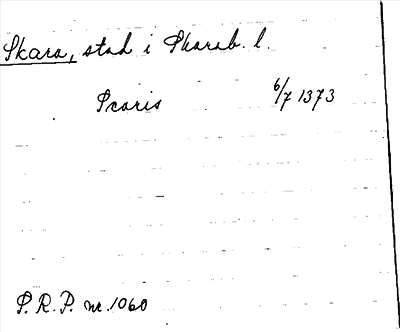 Skara, stad i Skarab. l.
Scaris 6/7 1373
P.R.P. nr. 1060